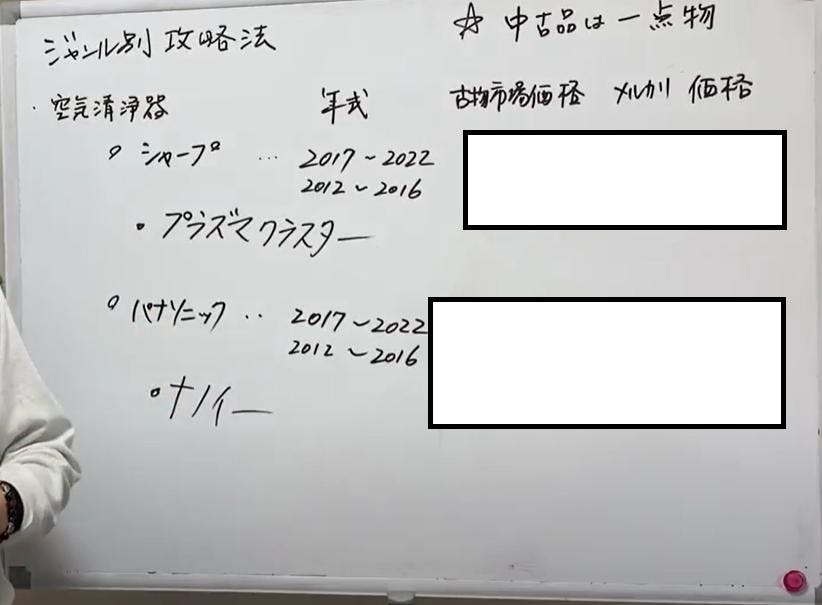 ジャンル別 攻略法
☆ 中古品は一点物
・空気清浄器 年式 古物市場価格 メルカリ 価格
○ シャープ … 2017～2022
2012～2016
・プラズマクラスター
○ パナソニック ‥ 2017～2022
2012～2016
○ナノイー